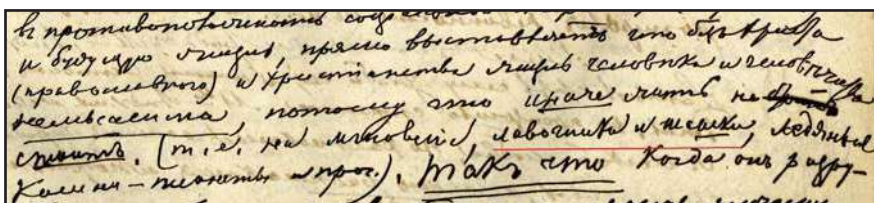 въ противоположность
и будущую жизнь, прямо выставляетъ что безъ Христа
(православнаго) и Христiанства жизнь человѣка и человѣчества
немыслима, потому что иначе жить не
стоитъ. (т. е. на мгновенiе, лавочника и мешки, ледяные
камни – планеты и проч.). Такъ что когда онъ разру-